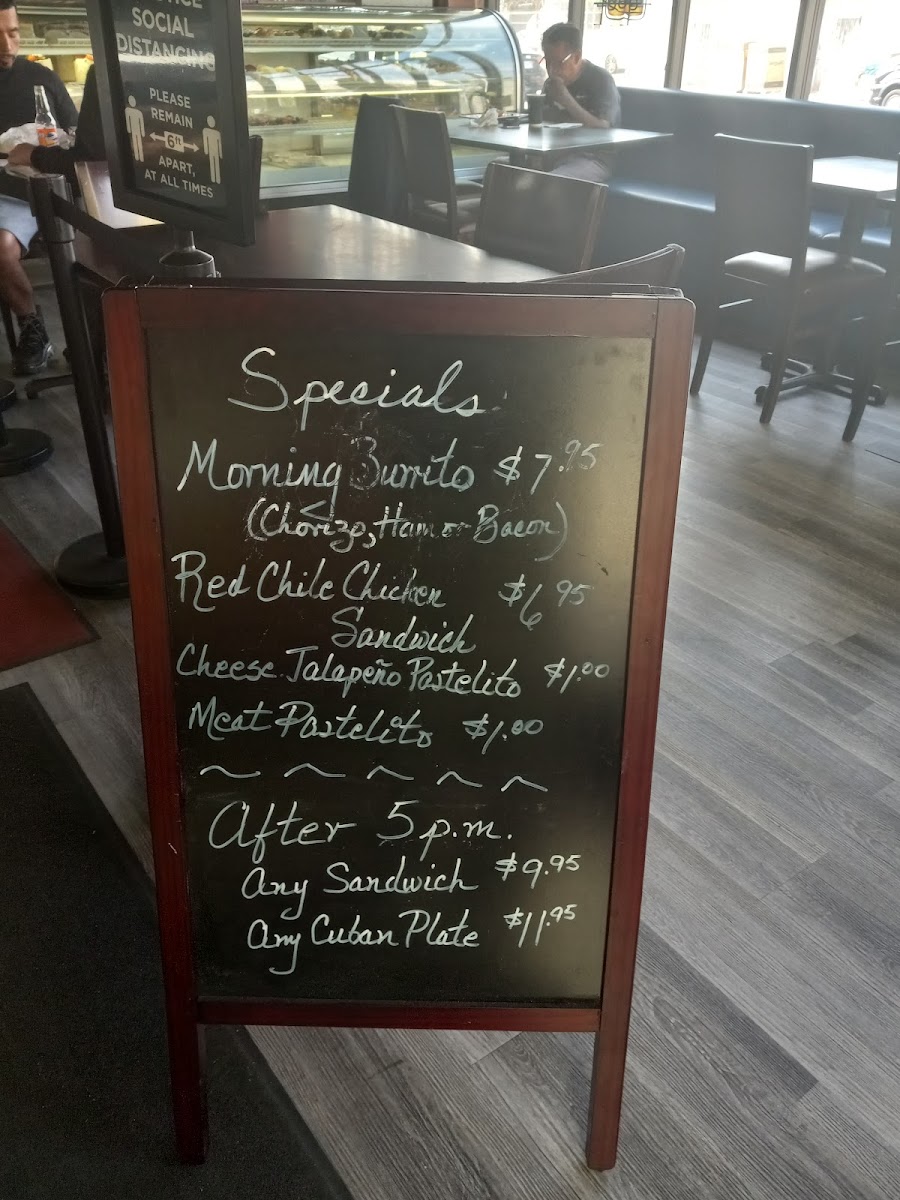 SOCIAL
DISTANCING
PLEASE
REMAIN
6ft
APART,
AT ALL TIMES
Specials
Morning Burrito $7.95
(Chorizo, Ham or Bacon)
Red Chile Chicken $6.95
Sandwich
Cheese Jalapeño Pastelito $1.00
Meat Pastelito $1.00
After 5 p.m.
Any Sandwich $9.95
Any Cuban Plate $11.95